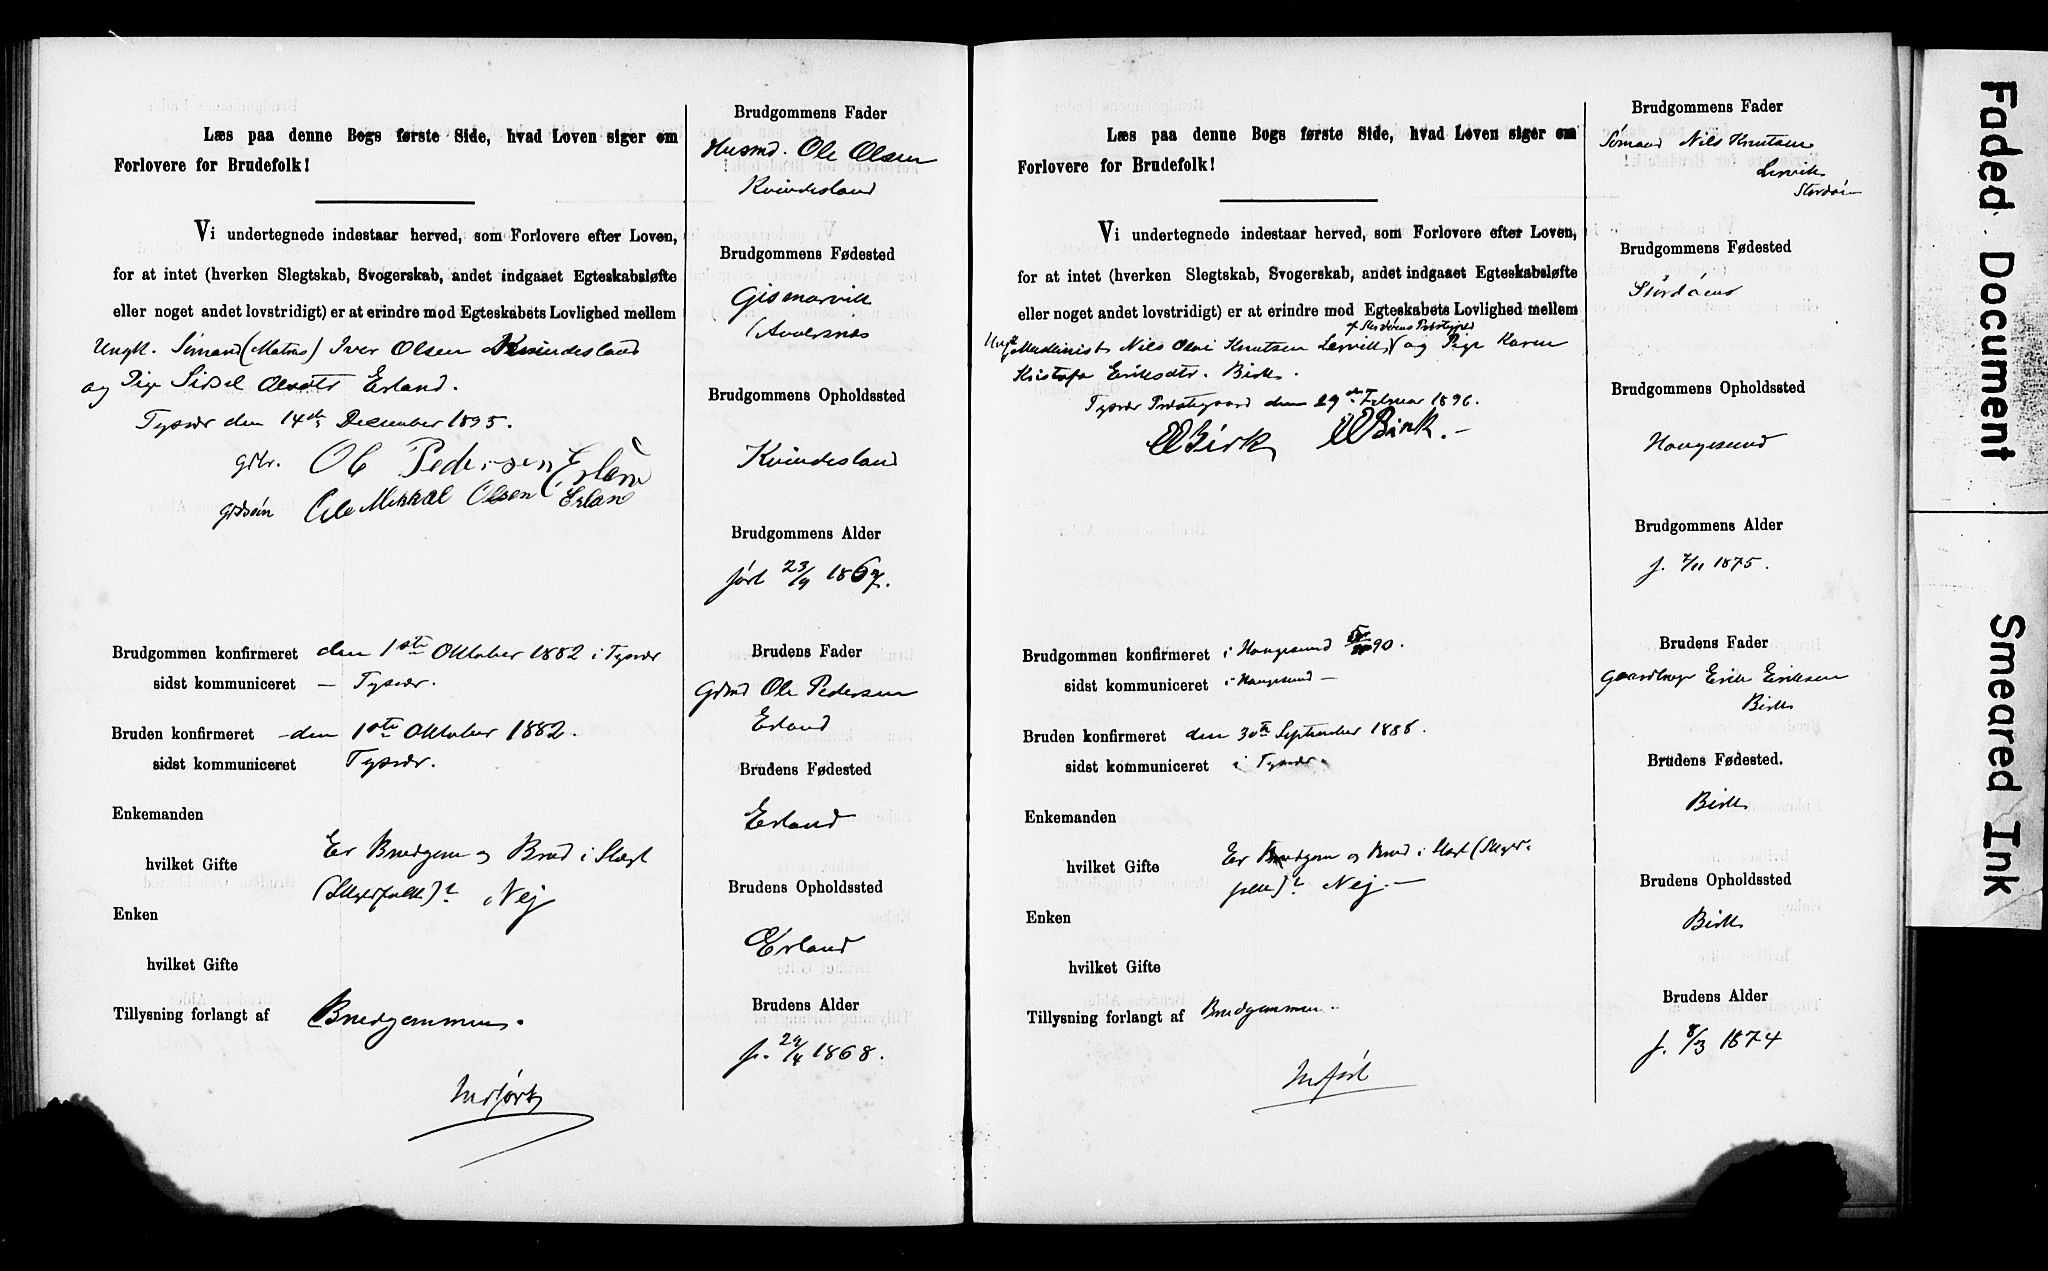 Læs paa denne Bogs første Side, hvad Loven siger om
Forlovere for Brudefolk!
Vi undertegnede indestaar herved, som Forlovere efter Loven,
for at intet (hverken Slegtskab, Svogerskab, andet indgaaet Egteskabsløfte
eller noget andet lovstridigt) er at erindre mod Egteskabets Lovlighed mellem
Ungk. Sømand (Matros) Iver Olsen Kvindesland
og Pige Sissel Olsdtr Erland.
Tysvær den 14de December 1895.
gdbr. Ole Pedersen Erland
gdsøn Ole Mikkal Olsen Erland
Brudgommen konfirmeret den 1ste Oktober 1882 i Tysvær
sidst kommuniceret – Tysvær.
Bruden konfirmeret – den 1ste Oktober 1882.
sidst kommuniceret Tysvær.
Enkemanden
hvilket Gifte Er Brudgom og Brud i Slægt
(Skyldfolk)? Nej
Enken
hvilket Gifte
Tillysning forlangt af Brudgommen.
Indført
Brudgommens Fader
Husmd. Ole Olsen
Kvindesland
Brudgommens Fødested
Gismarvik
Avaldsnes
Brudgommens Opholdssted
Kvindesland
Brudgommens Alder
født 23/9 1867.
Brudens Fader
Gdmd Ole Pedersen
Erland
Brudens Fødested
Erland
Brudens Opholdssted
Erland
Brudens Alder
f. 29/4 1868.
Læs paa denne Bogs første Side, hvad Loven siger om
Forlovere for Brudefolk!
Vi undertegnede indestaar herved, som Forlovere efter Loven,
for at intet (hverken Slegtskab, Svogerskab, andet indgaaet Egteskabsløfte
eller noget andet lovstridigt) er at erindre mod Egteskabets Lovlighed mellem
af Stordøens Præstegjeld
Ungk. Maskinist Nils Olai Knutsen Lervik og Pige Karen
Kristofa Eriksdtr. Birk.
Tysvær Præstegaard den 29de Februar 1896.
EEBirk OEBirk.
Brudgommen konfirmeret i Haugesund 90.
sidst kommuniceret i Haugesund –
Bruden konfirmeret den 30te September 1888.
sidst kommuniceret i Tysvær.
Enkemanden
hvilket Gifte Er Brudgom og Brud i Slægt (Skyld-
folk)? Nej. –
Enken
hvilket Gifte
Tillysning forlangt af Brudgommen.
Indført
Brudgommens Fader
Sømand Nils Knutsen
Lervik
Stordøen
Brudgommens Fødested
Stordøens
Brudgommens Opholdssted
Haugesund
Brudgommens Alder
f. 7/11 1875.
Brudens Fader
Gaardbruger Erik Eriksen
Birk
Brudens Fødested.
Birk
Brudens Opholdssted
Birk
Brudens Alder
f. 8/3 1874
Faded Document
Smeared Ink